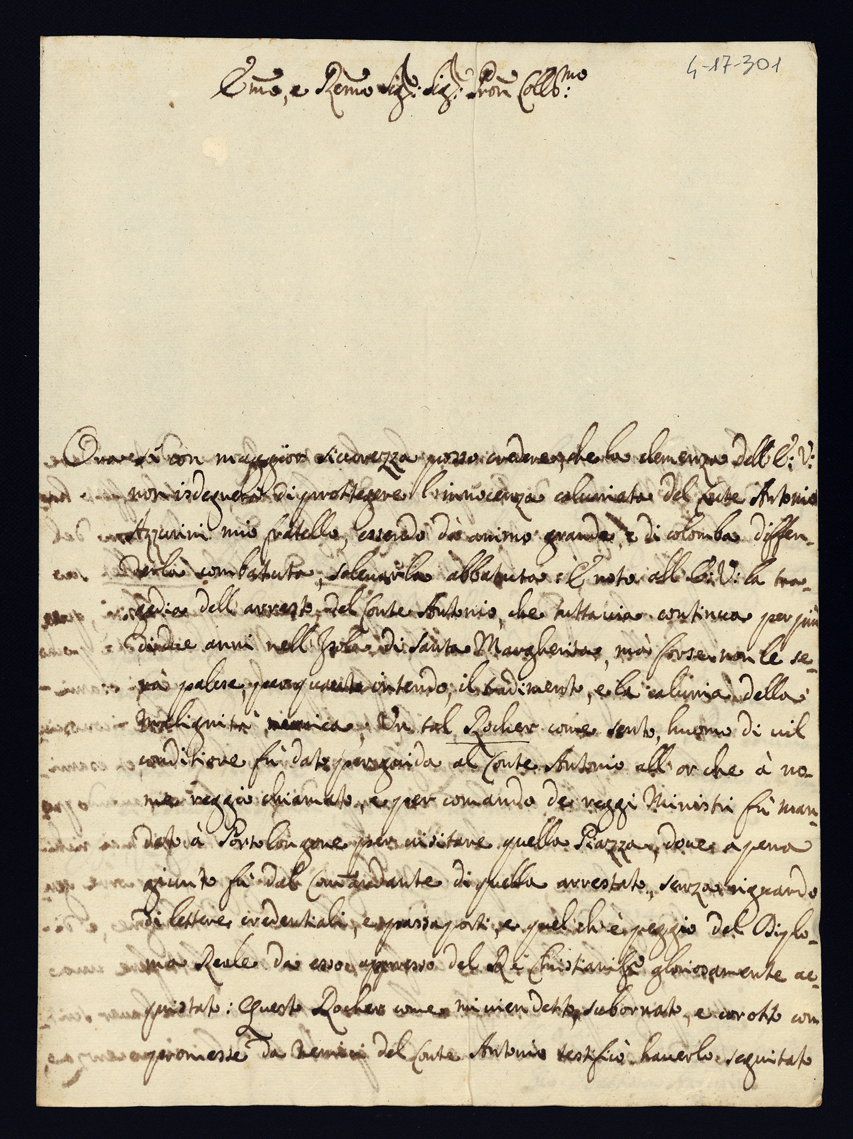 4-17-301
Emo, e Remo Sigr: Sigr: Pron Collmo:
Ora si con maggior sicurezza posso credere, che la clemenza dell E: V:
non isdegnerà di proteggere l'innocenza caluniata del Conte Antonio
Azzurini mio fratello, essendo da animo grande, e di colomba diffen-
derla combatuta, solevarla abbatuta: È noto all E: V: la tra-
gedia dell arresto del Conte Antonio, che tuttavia continua per più
di due anni nell Isola di Santa Margherita, mà forse non le se-
rà palese, per quanto intendo, il tradimento, e la calunia della
malignità nemica; Un tal Rocher come sento, huomo di vil
conditione fù dato per guida al Conte Antonio all or che à no-
me reggio chiamato, e per comando de reggi Ministri fù man-
dato à Portolongone per visitare quella Piazza, dove apena
giunto fù dal Comandante di quella arrestato, senza riguardo
di lettere credentiali, e passaporti, e quel ch'è peggio del Diplo-
ma Reale da esso appresso del Rè Christianis: gloriosamente ac-
quistato: Questo Rocher come mi vien detto, subornato, e corotto con
promesse da Nemici del Conte Antonio testificò haverlo seguitato